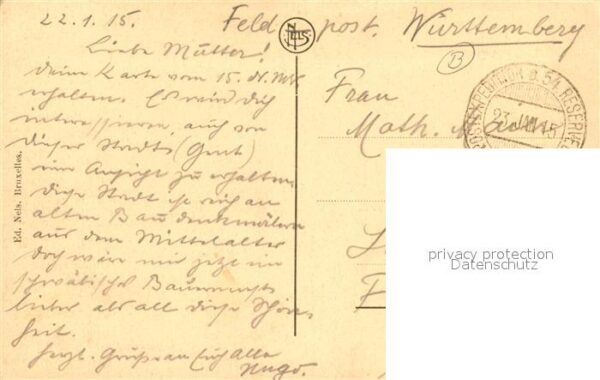 22.1.15. Feldpost. Württemberg
Liebe Mutter!
deine Karte vom 15. ds. Mts.
erhalten. Es wird dich
interessieren, auch von
dieser Stadt (Gent)
eine Ansicht zu erhalten.
diese Stadt ist reich an
alten Baudenkmälern
aus dem Mittelalter
doch wäre mir jetzt ein
schwäbisches
lieber als all diese Schön-
heit.
Herzl. Grüsse an Euch Alle
Hugo.
Ed. Nels, Bruxelles.
NELS
B
Frau
Math.
54. RESERVE
23 JAN 15
privacy protection
Datenschutz